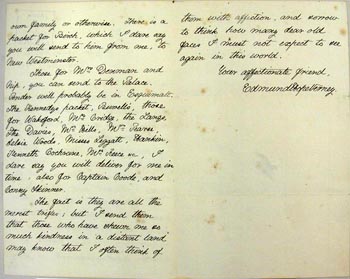 own family or otherwise. There is a
packet for Birch, which I dare say
you will send to him from me, to
New Westminster.
Those for Mrs Denman and
you can send to the Palace.
Pender will probably be in Esquimalt.
The Kennedys packet, those
for Wakford, Mrs Bridge, the Langs,
The Davies, Mr Mills, Mrs Pearse
Woods, Misses Leggatt, Rankin,
Kenneth Cochrane, Mrs I
dare say you will deliver for me in
time; also for Captain Coode, and
Skinner.
The fact is they are all the
merest trifles; but I send them
that those who have shewn me so
much kindness in a distant land
may know that I often think of
them with affection, and sorrow
to think how many dear old
faces I must not expect to see
again in this world.
Your affectionate friend,
Edmund Hope Verney